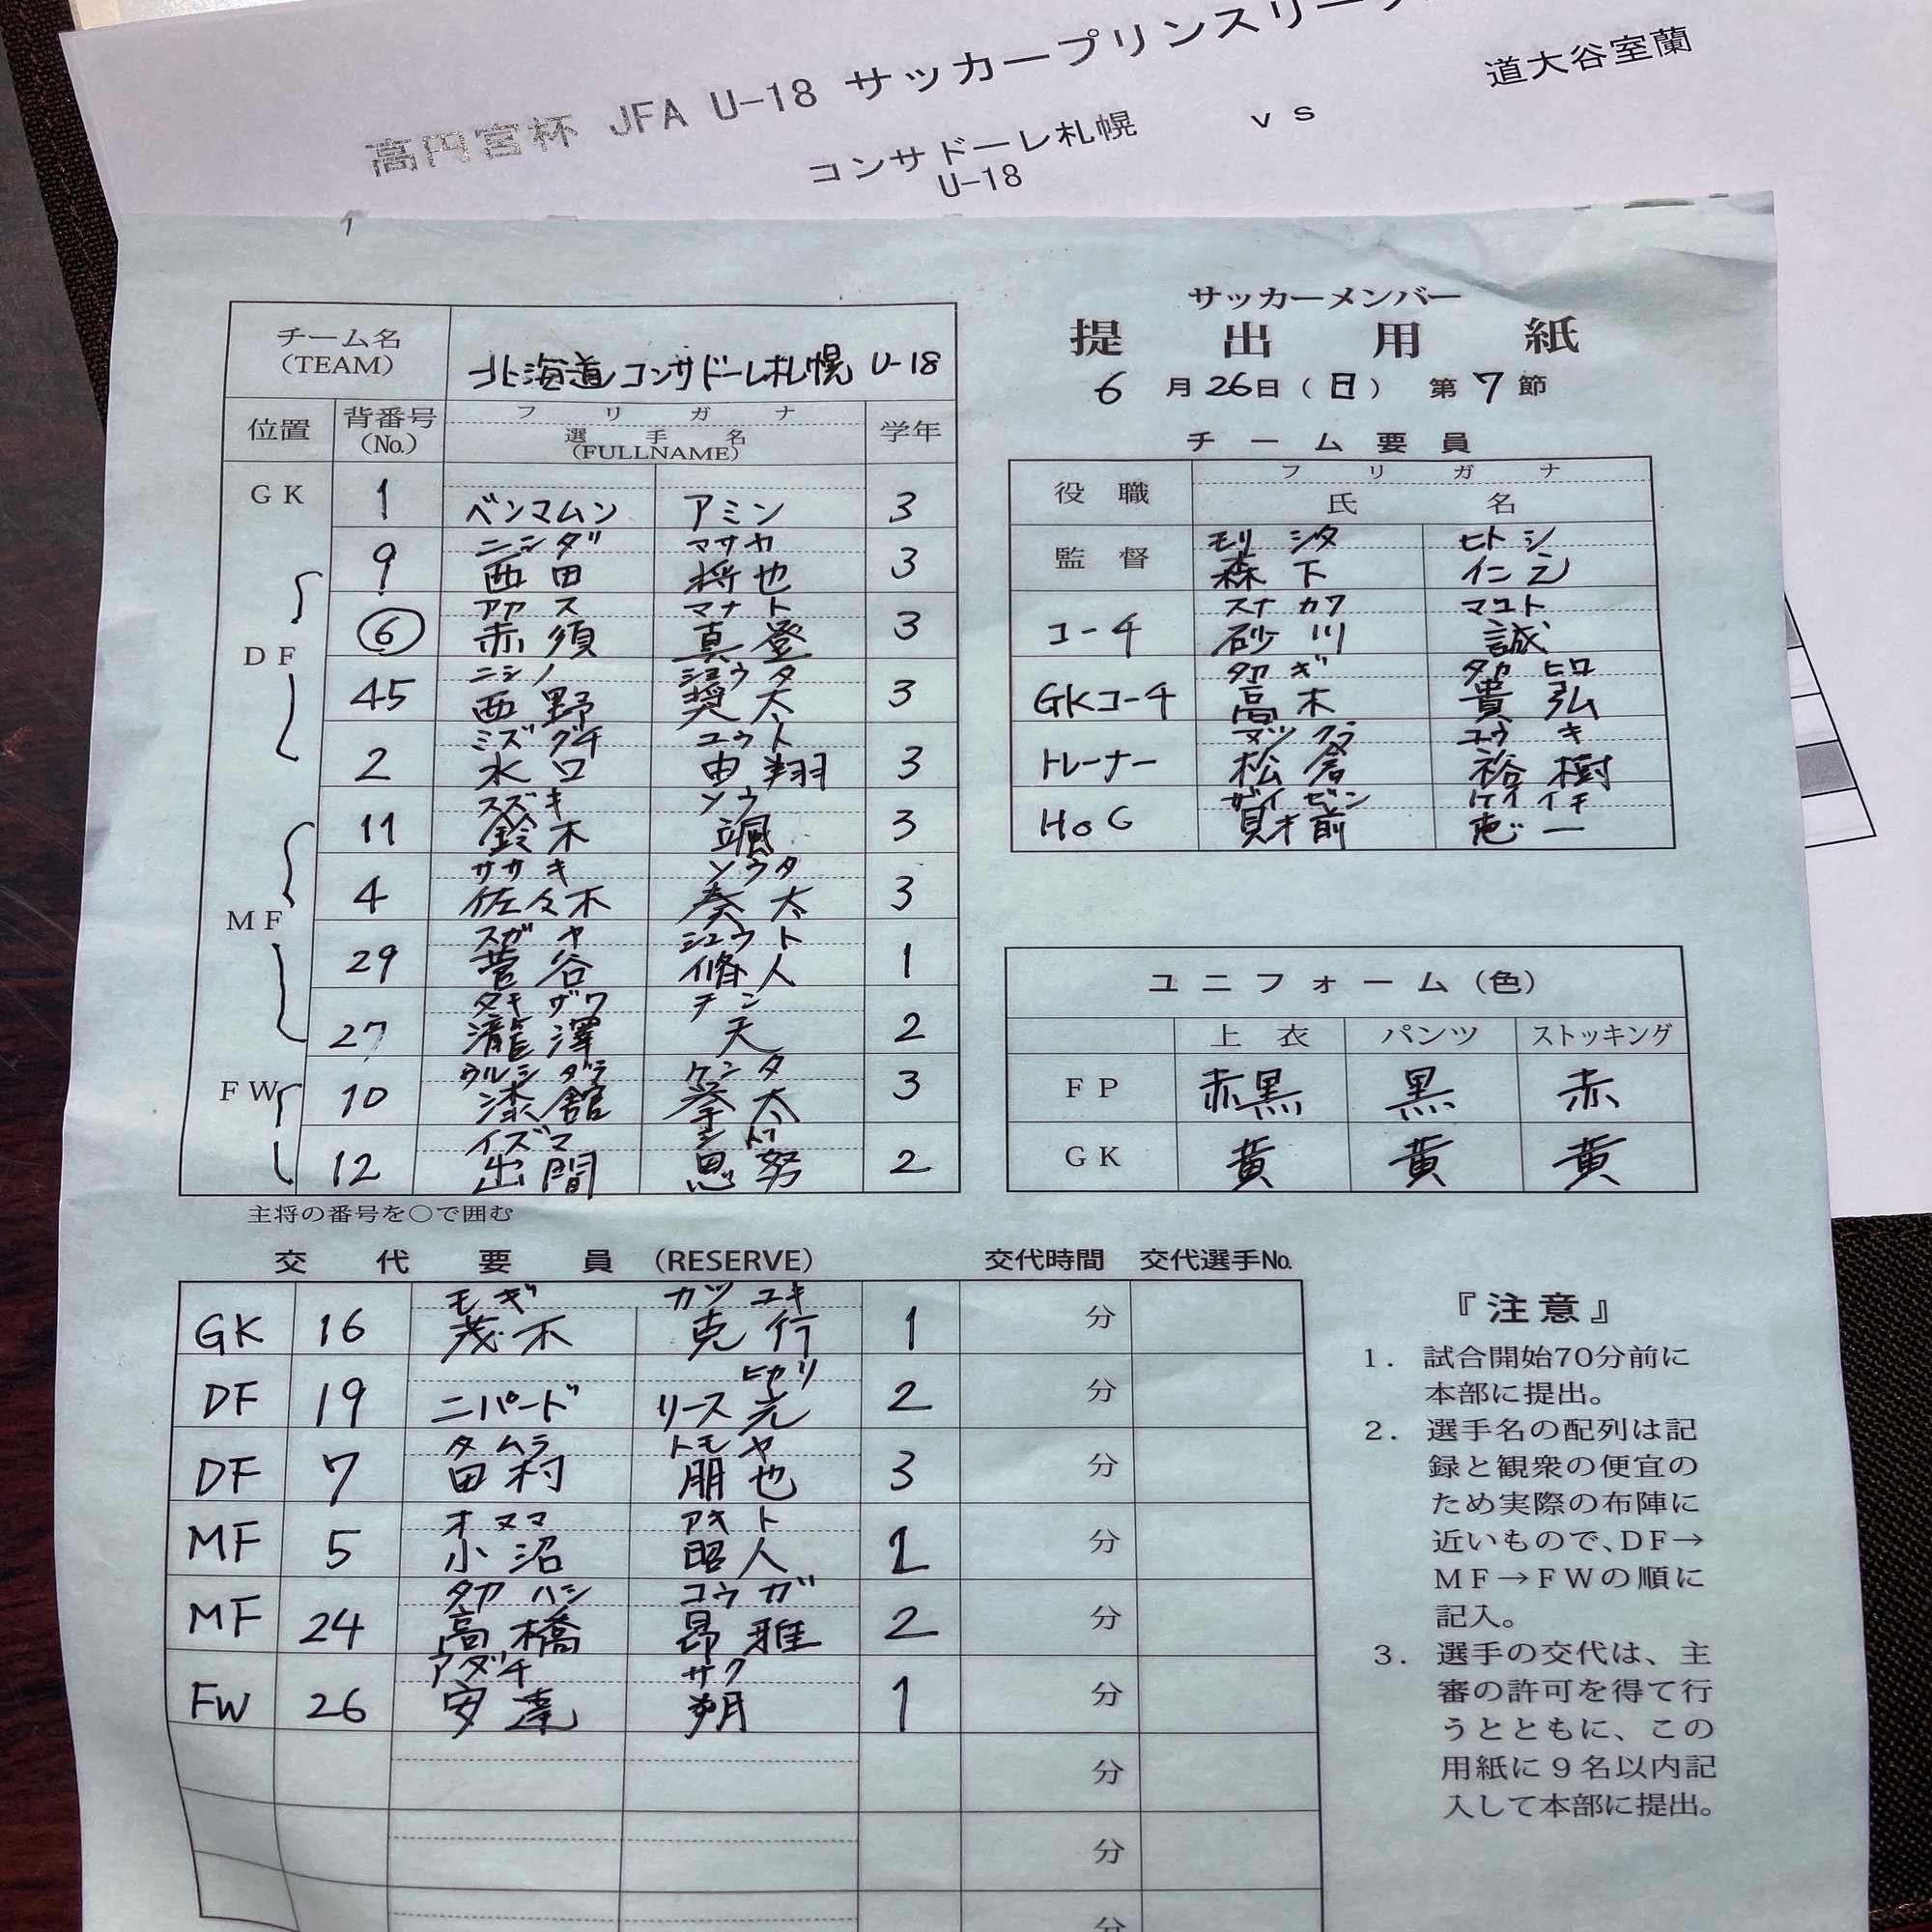 高円宮杯 JFA U-18 サッカープリンスリーグ
コンサドーレ札幌 vs 道大谷室蘭
U-18
サッカーメンバー
提出用紙
6月26日(日) 第7節
チーム名 北海道コンサドーレ札幌 U-18
(TEAM)
位置 背番号 フリガナ 学年
(No.) 選手名
(FULLNAME)
GK 1 ベンマムン アミン 3
ニシダ マサヤ
9 西田 将也 3
アカス マナト
DF ⑥ 赤須 真登 3
ニシノ ショウタ
45 西野 奨太 3
ミズグチ ユウト
2 水口 由翔 3
スズキ ソウ
11 鈴木 颯 3
ササキ ソウタ
4 佐々木 奏太 3
MF
スガヤ シュウト
29 菅谷 脩人 1
タキザワ テン
27 瀧澤 天 2
ウルシダテ ケンタ
FW 10 漆舘 拳太 3
イズマ シド
12 出間 思努 2
主将の番号を○で囲む
チーム要員
役職 フリガナ
氏名
モリシタ ヒトシ
監督 森下 仁志
スナカワ マコト
コーチ 砂川 誠
タカギ タカヒロ
GKコーチ 高木 貴弘
マツクラ ユウキ
トレーナー 松倉 裕樹
ザイゼン ケイイチ
HoG 財前 恵一
ユニフォーム(色)
上衣 パンツ ストッキング
FP 赤黒 黒 赤
GK 黄 黄 黄
交代要員 (RESERVE) 交代時間 交代選手No.
モギ カツユキ
GK 16 茂木 克行 1 分
ヒカリ
DF 19 ニパード リース光 2 分
タムラ トモヤ
DF 7 田村 朋也 3 分
オヌマ アキト
MF 5 小沼 昭人 1 分
タカハシ コウガ
MF 24 高橋 昂雅 2 分
アダチ サク
FW 26 安達 朔 1 分
分
分
分
『注意』
1. 試合開始70分前に
本部に提出。
2. 選手名の配列は記
録と観衆の便宜の
ため実際の布陣に
近いもので、DF→
MF→FWの順に
記入。
3. 選手の交代は、主
審の許可を得て行
うとともに、この
用紙に9名以内記
入して本部に提出。